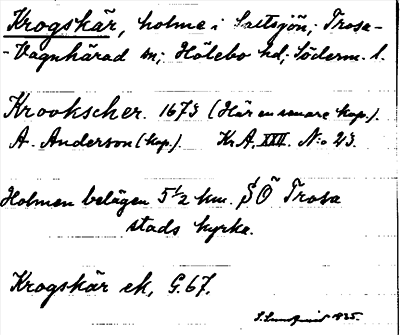 Krogskär, holme i Saltsjön; Trosa-
-Vagnhärad sn; Hölebo hd; Söderm. l.
Krookscher. 1673 (Här en senare kop.).
A. Anderson (kop.). Kr.A. XXII. N:o 23.
Holmen belägen 5½ km. S Ö Trosa
stads kyrka.
Krogskär ek, G.67.
S. Lundquist 1925.